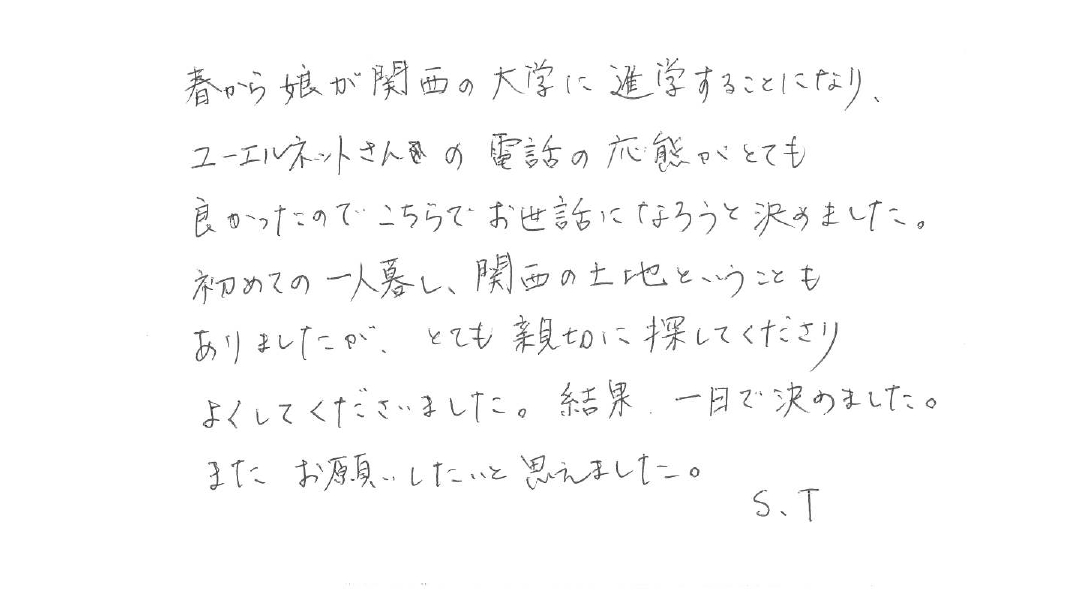 春から娘が関西の大学に進学することになり、
ユーエルネットさんの電話の応態がとても
良かったのでこちらでお世話になろうと決めました。
初めての一人暮し、関西の土地ということも
ありましたが、とても親切に探してくださり
よくしてくださいました。結果、一日で決めました。
またお願いしたいと思えました。
S、T